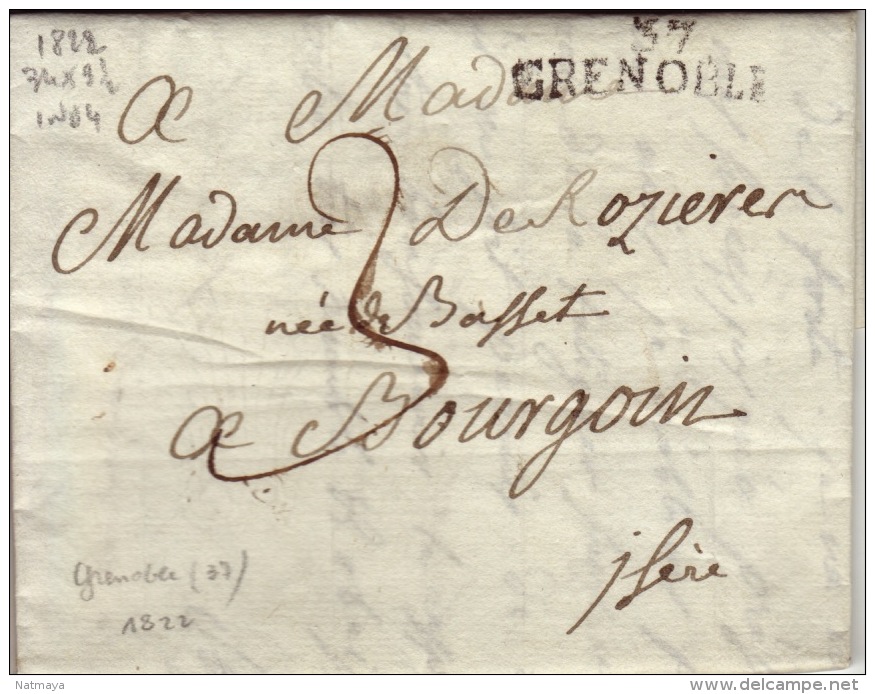 1822
37
GRENOBLE
A Madame
Madame De Rozieres
3
née de Basset
A Bourgoin
jsère
Grenoble (37)
1822
Natmaya
www.delcampe.net